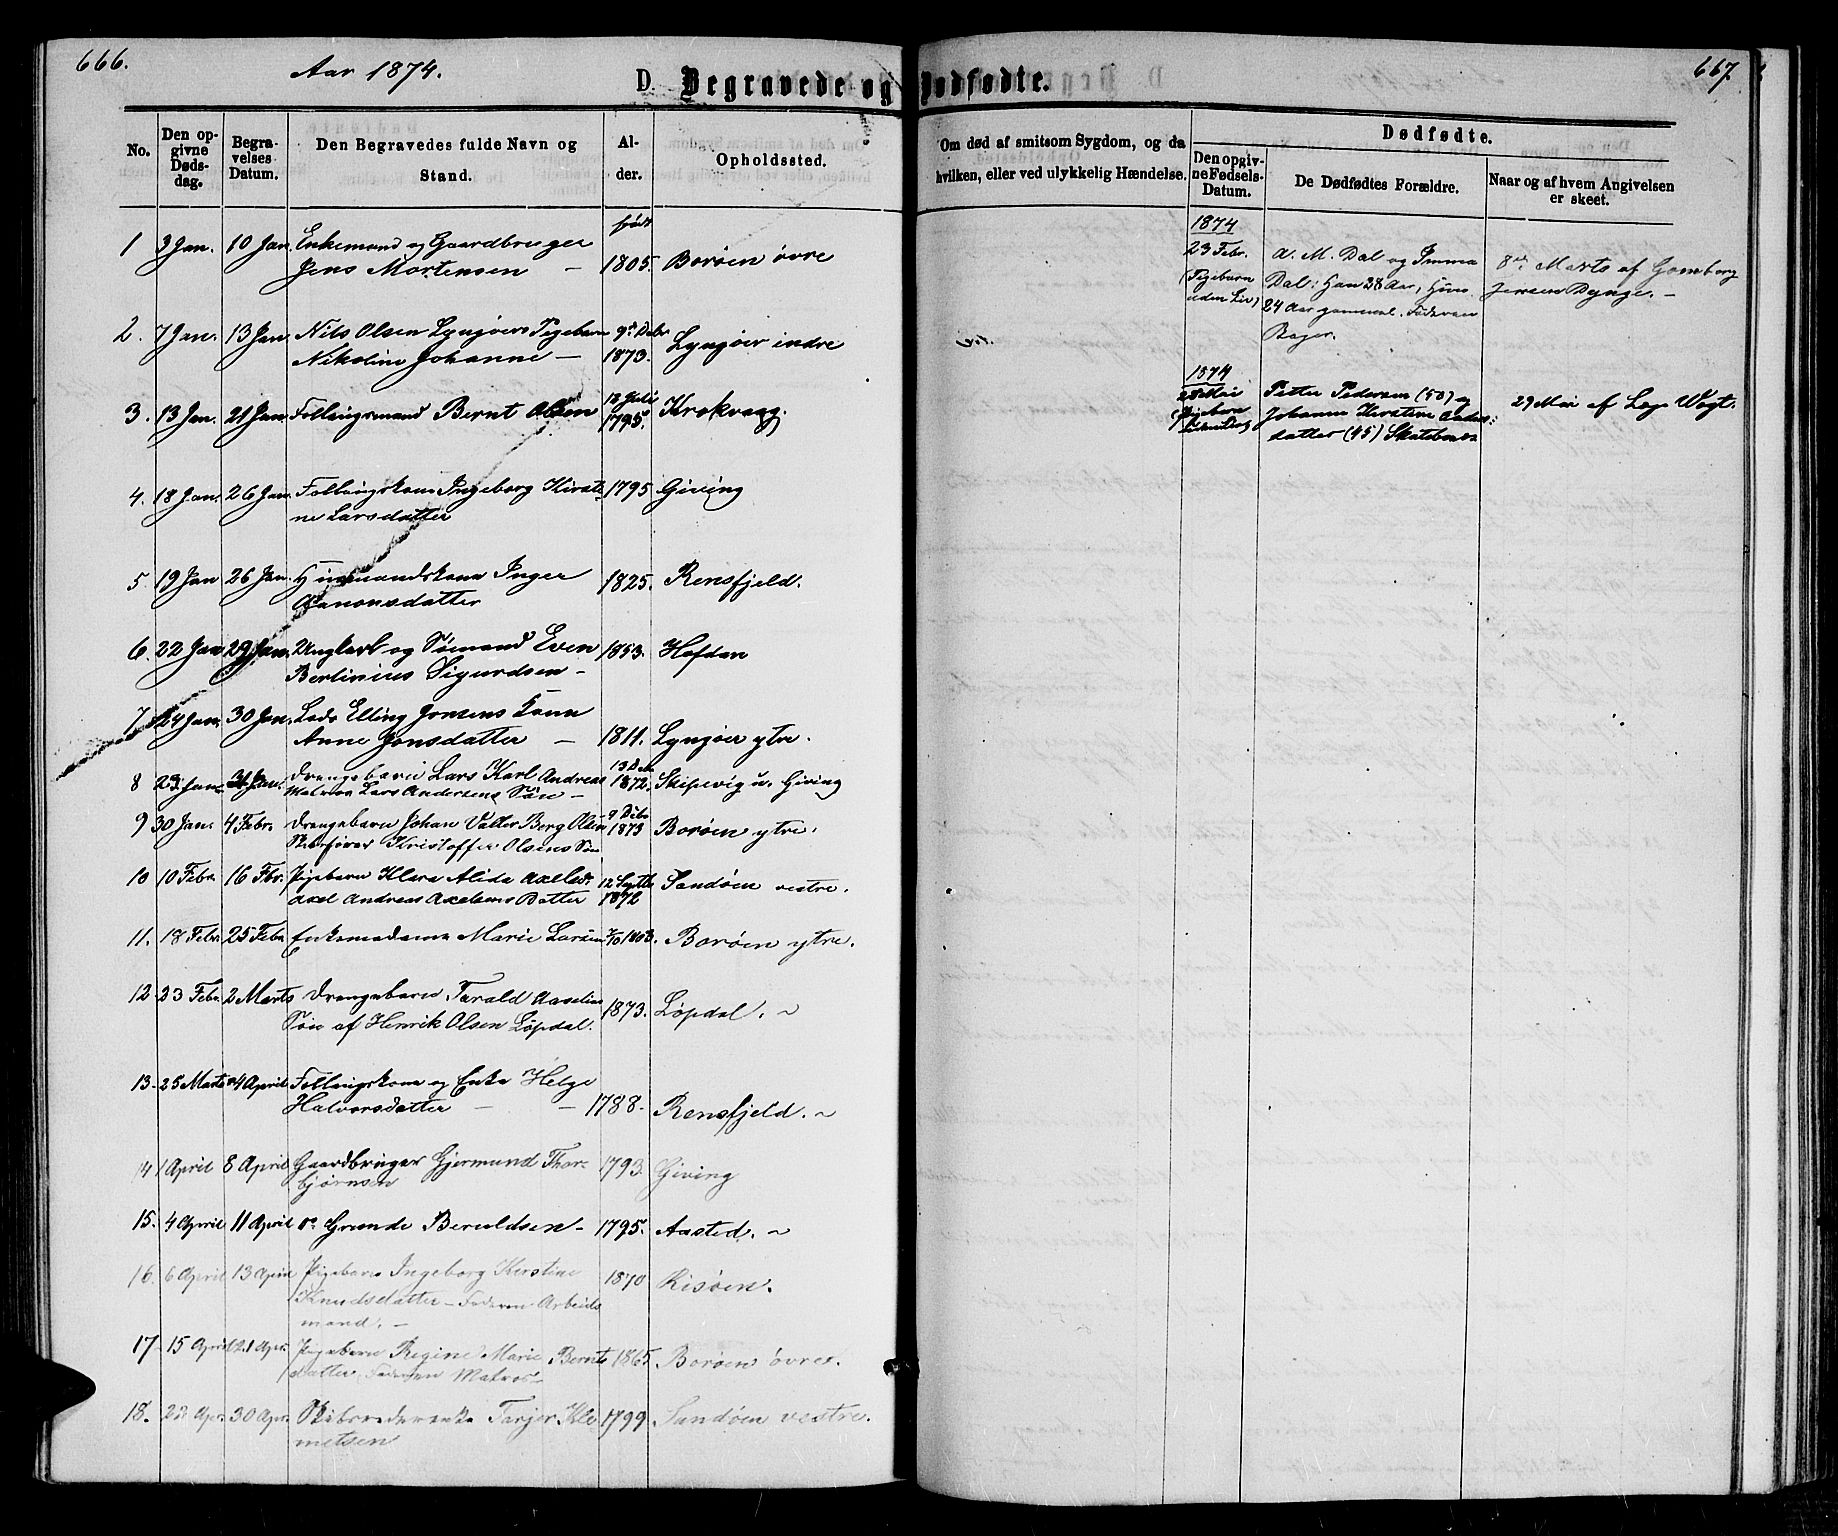 666.
Aar 1874.
D. Begravede og Dødfødte.
667
No.
Den opgivne Dødsdag.
Begravelses Datum.
Den Begravedes fulde Navn og Stand.
Alder.
Opholdssted.
Om død af smitsom Sygdom, og da hvilken, eller ved ulykkelig Hændelse.
Dødfødte.
Den opgivne Fødsels-Datum.
De Dødfødtes Forældre.
Naar og af hvem Angivelsen er skeet.
født
1 3 Jan. 10 Jan. Enkemand og Gaardbruger
Jens Mortensen – 1805. Borøen øvre
2. 7 Jan. 13 Jan. Nils Olsen Lyngøers Pigebarn 9de Debr
Nikoline Johanne – 1873. Lyngøer indre
3. 13 Jan. 21 Jan. Follaugsmand Bernt Olsen 1795. Krokvaag.
4. 18 Jan. 26 Jan. Follaugskone Ingeborg Kirsti- 1795 Giving
ne Larsdatter
5. 19 Jan 26 Jan. Huusmandskone Inger 1825. Rensfjeld.
Aanonsdatter
6. 22 Jan 29 Jan. Ungkarl og Sømand Even 1853. Hafdan
Berlinius Sigurdsen –
7. 24 Jan. 30 Jan. Lods Elling Jonsens Kone
Anne Jonsdatter – 1811. Lyngøer ytre.
8 23 Jan. 31 Jan. Drengebarn Lars Karl Andreas 13 Dec
Matros Lars Andersens Søn – 1872. Skipevig u. Giving
9 30 Jan. 4 Febr. Drengebarn Johan Valter Berg Olsen 9 Debr 1873 Borøen ytre.
Skibsfører Kristoffer Olsens Søn
10 10 Febr. 16 Fbr. Pigebarn Klara Alida Axelsdr. 12 Septbr Sandøen vestre.
Axel Andreas Axelsens Datter 1872
11. 18 Febr. 25 Febr. Enkemadame Marie Larsen 1803. Borøen ytre.
12 23 Febr. 2 Marts Drengebarn Tarald Aaselius
Søn af Henrik Olsen Løpdal. 1873. Løpdal. ~
13. 25 Marts 4 April Follaugskone og Enke Helge
Halvorsdatter – – 1788. Rensfjeld. ~
14 1 April 8 April Gaardbruger Gjermund Thor- 1793. Giving
bjørnsen
15. 4 April 11 April do Grunde Beruldsen – 1795. Aasted. ~
16. 6 April 13 April Pigebarn Ingeborg Kirstine 1870 Risøen.
Knudsdatter – Faderen Arbeids
mand. –
17. 15 April 21 Apr. Pigebarn Regine Marie Bernts 1865 Borøen øvre.
datter, Faderen Matros –
18. 30 Apr. Skibsrederenke Tarjer Kle 1799 Sandøen vestre.
metsen
1874
23 Febr. A. M. Dal og Imma 8de Marts af Gomborg
(Pigebarn Dal: Han 28 Aar, Hun Jensen Dynge. –
uden Liv) 24 Aar gammel. Faderen
Bager.
1874
28 Mai Peter Pedersen (50) og 29 Mai af Læge Vogt.
(Pigebarn Johanne Kirstine Anders-
datter (45) Skatebnes